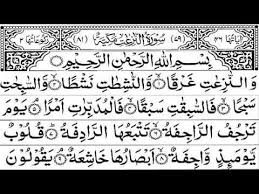 اياتها ٤٦ (٧٩) سُوْرَةُ النّٰزِعٰتِ مَكِّيَّةٌ (٨١) ركوعاتها ٢
بِسْمِ اللّٰهِ الرَّحْمٰنِ الرَّحِيْمِ
وَالنّٰزِعٰتِ غَرْقًا ۝ وَّالنّٰشِطٰتِ نَشْطًا ۝ وَّالسّٰبِحٰتِ
سَبْحًا ۝ فَالسّٰبِقٰتِ سَبْقًا ۝ فَالْمُدَبِّرٰتِ اَمْرًا ۝ يَوْمَ
تَرْجُفُ الرَّاجِفَةُ ۝ تَتْبَعُهَا الرَّادِفَةُ ۝ قُلُوْبٌ
يَّوْمَئِذٍ وَّاجِفَةٌ ۝ اَبْصَارُهَا خَاشِعَةٌ ۝ يَقُوْلُوْنَ